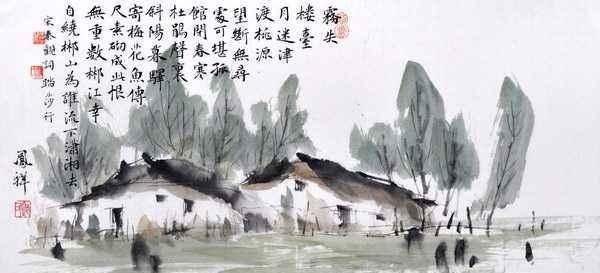 霧失
楼臺
月迷津
渡桃源
望斷無尋
處可堪孤
館閉春寒
杜鵑聲裏
斜陽暮驛
寄梅花魚傳
尺素砌成此恨
無重數郴江幸
自繞郴山為誰流下瀟湘去
宋秦觀詞踏莎行
鳳祥